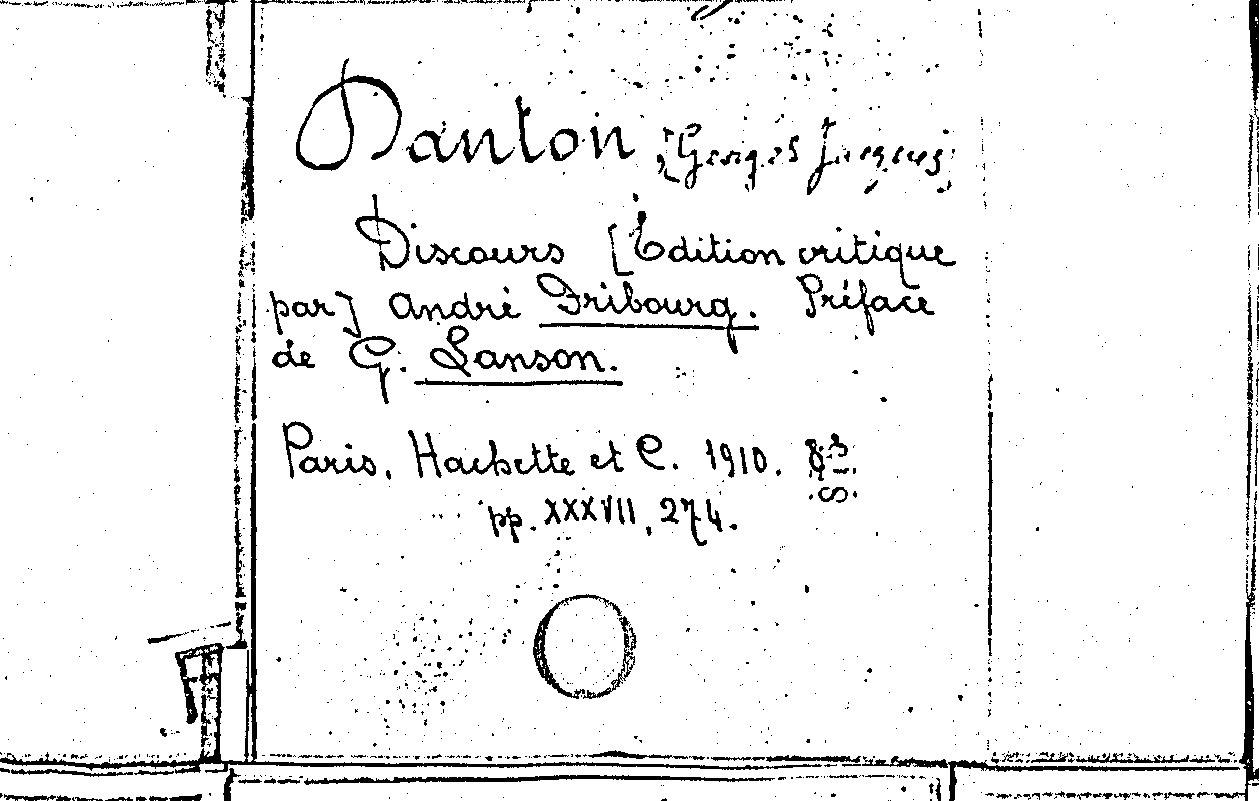 Danton [Georges Jacques]
Discours [Edition critique
par] André Fribourg. Préface
de G. Lanson.
Paris, Hachette et C. 1910. 8º
pp. XXXVII, 274.